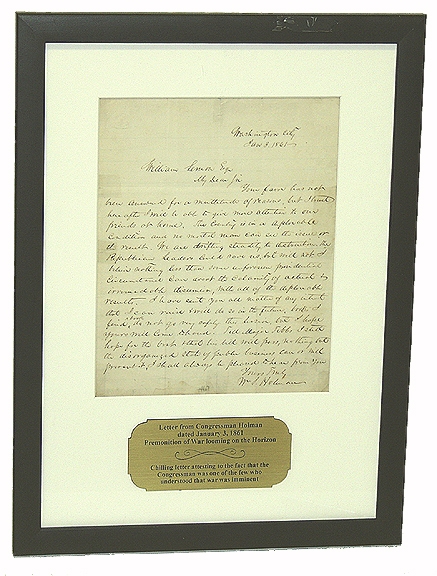 Washington City
Jan 3, 1861
William Lemon Esq
My Dear Sir
Your favor has not
been answered for a multitude of reasons, but I trust
hereafter I will be able to give more attention to our
friends at home. The Country is in a deplorable
condition and no mortal man can see the
the result. We are drifting steadily to destruction. The
Republican Leaders could save us, but will not. I
believe nothing less than some unforeseen providential
circumstance can avert the calamity of
disunion, with all of the deplorable
results. I have sent you all matter of any interest
that I can and will do so in the future,
I hope
yours will come to hand. Tell Major Tibbs I still
hope for the best that his bill will pass, nothing but
the disorganized state of public business can or will
prevent it; I shall always be pleased to hear from you
Yours truly
Wm S Holman
Letter from Congressman Holman
dated January 3, 1861
Premonition of War looming on the Horizon
Chilling letter attesting to the fact that the
Congressman was one of the few who
understood that war was imminent